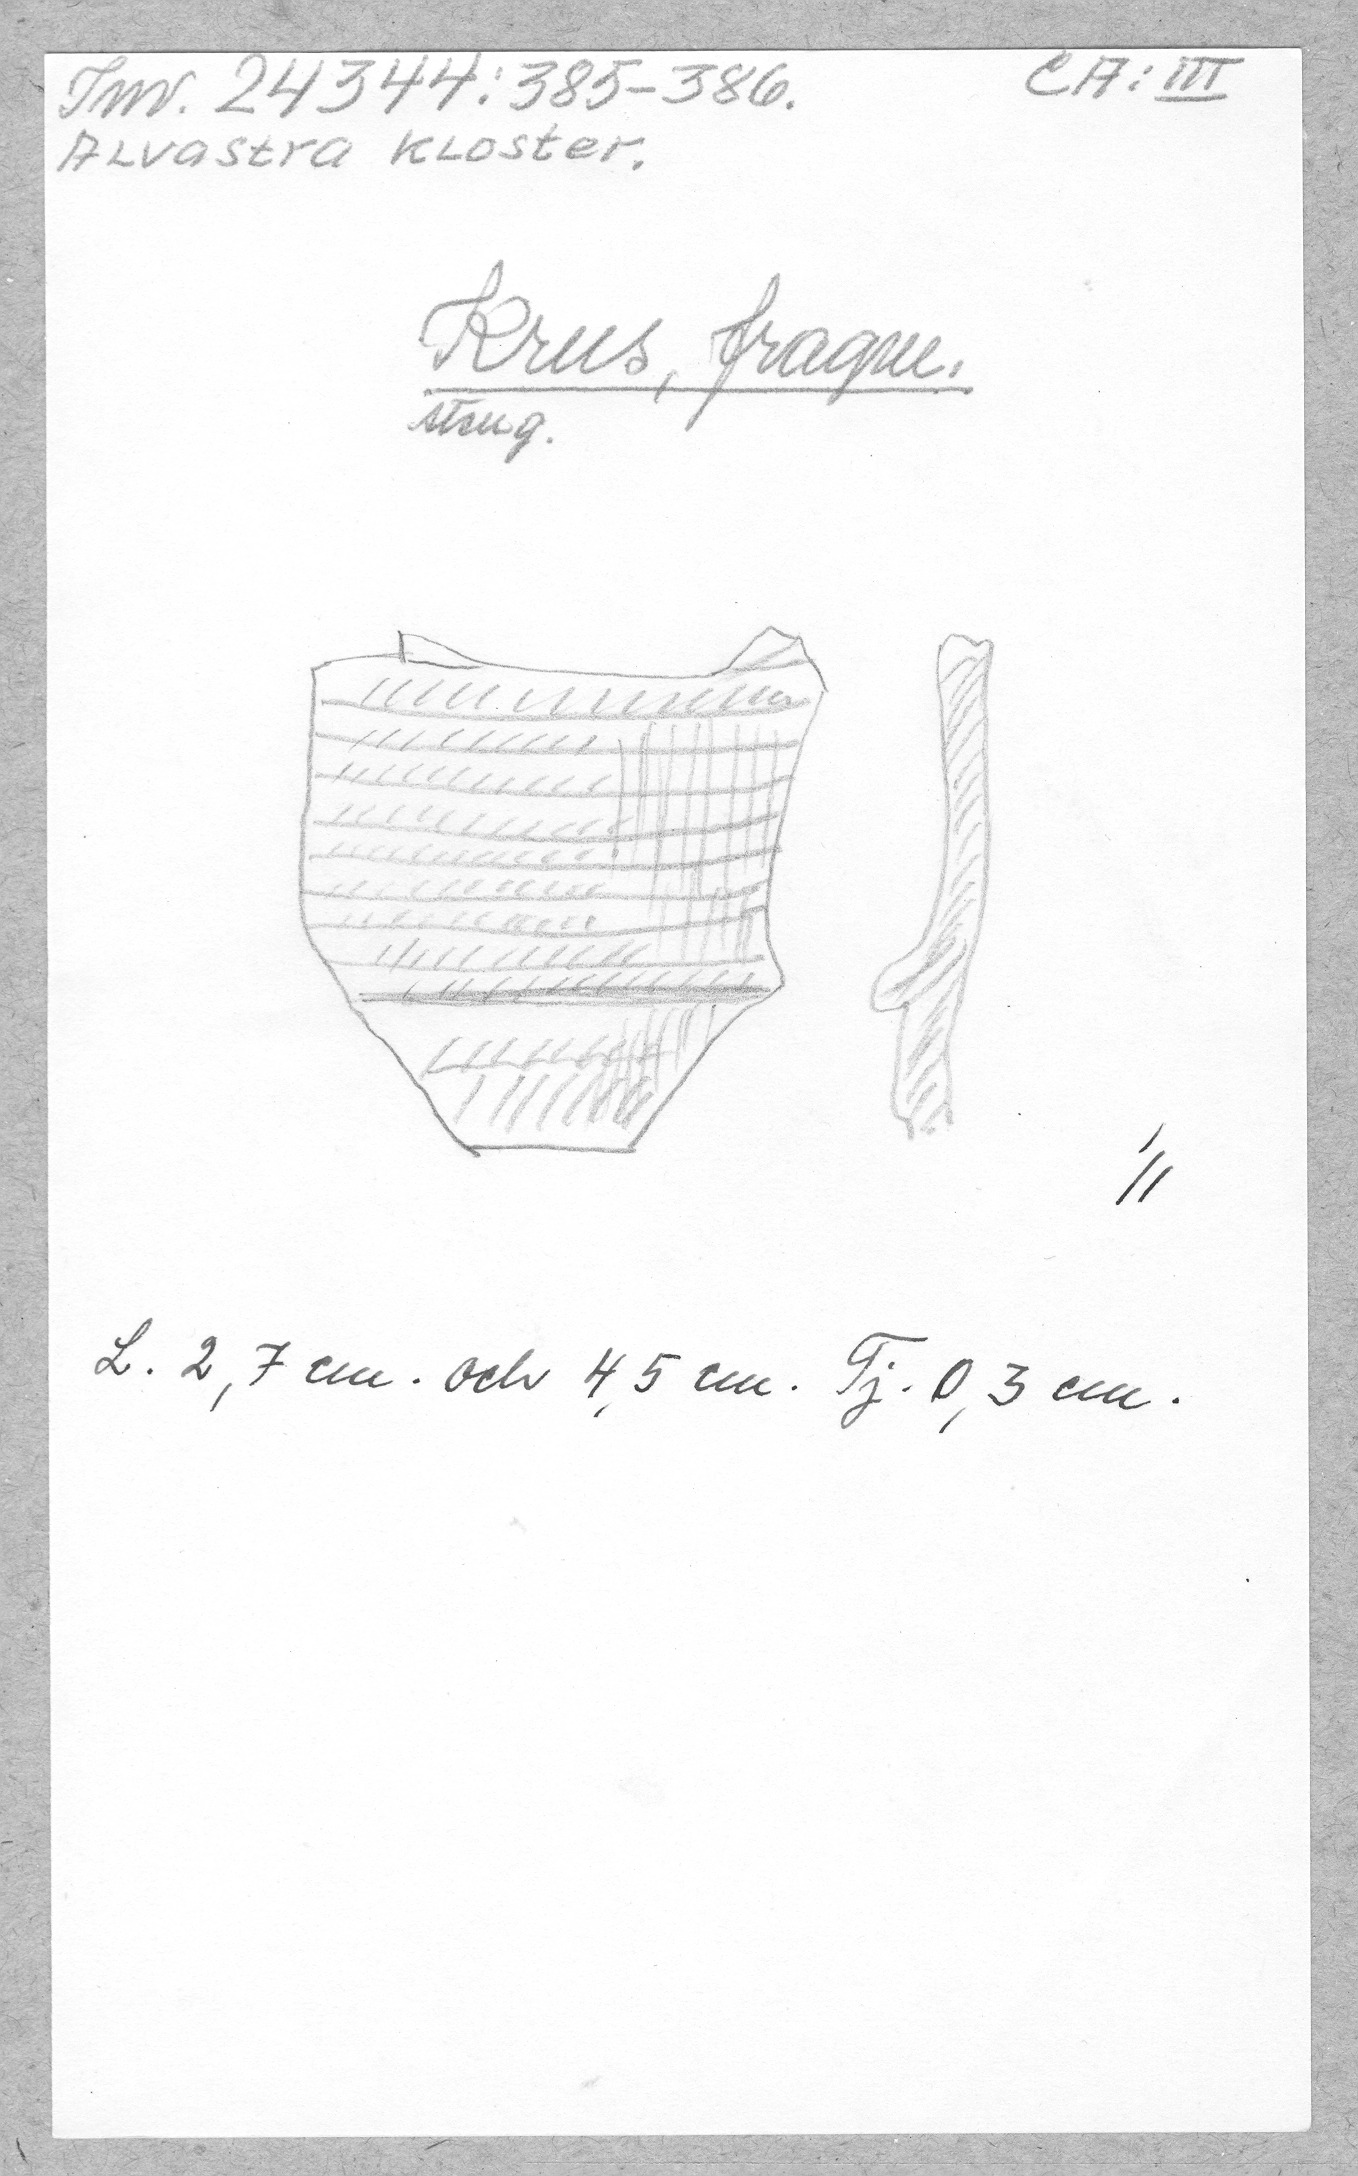 Inv. 24344:385-386. CA: III
Alvastra kloster.
Krus, fragm.
steng.
1/1
L. 2,7 cm. och 4,5 cm. Tj. 0,3 cm.